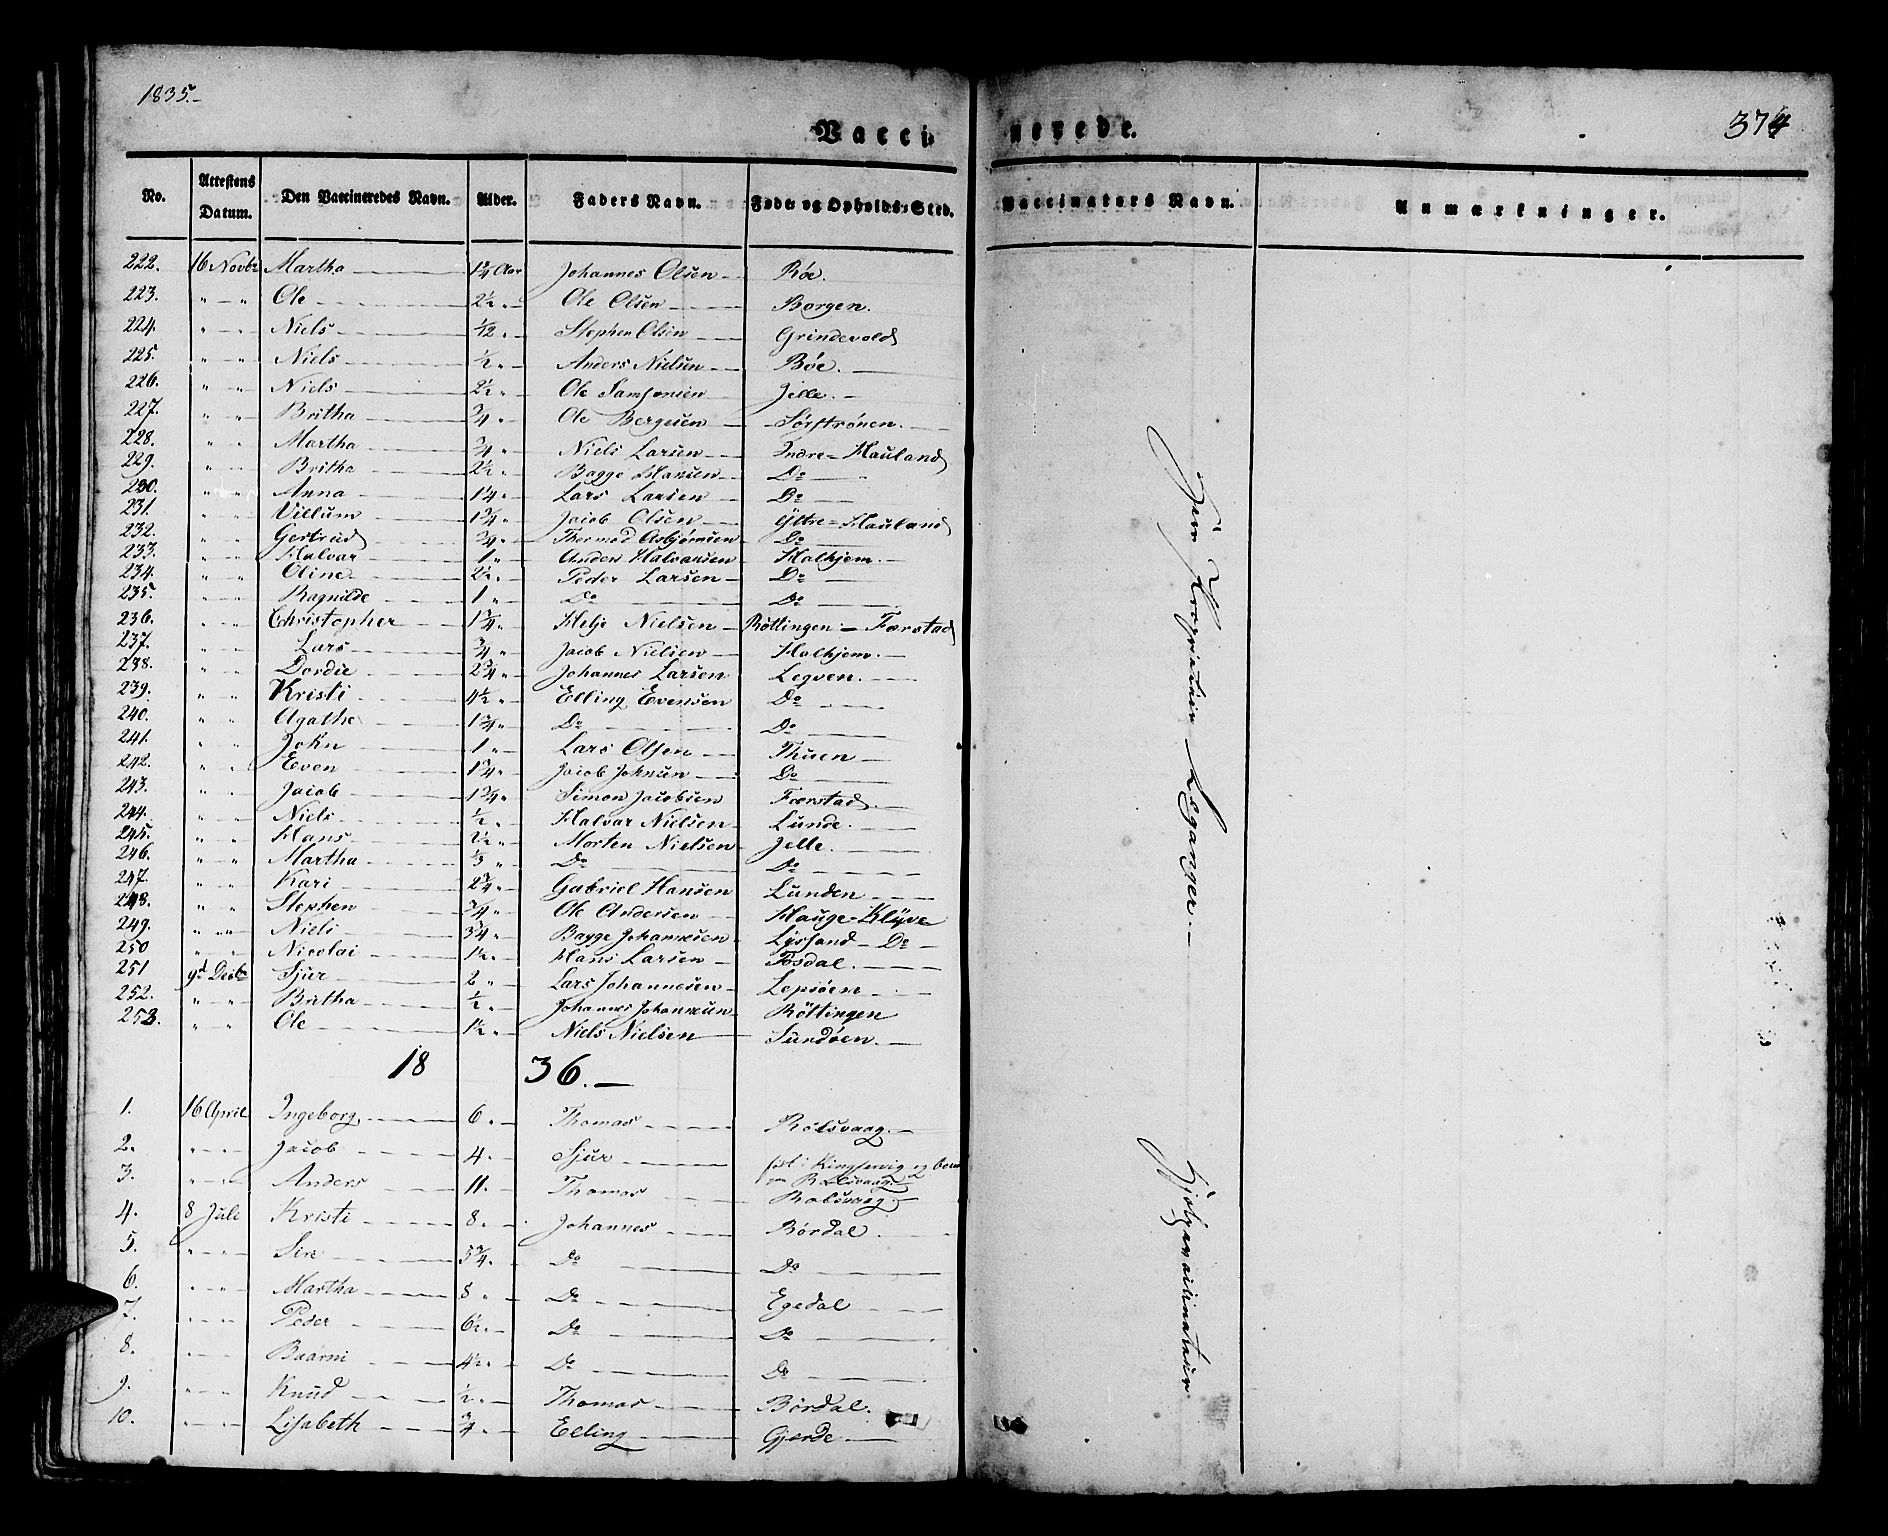 1835.
374
Vaccinerede.
No. Attestens Datum. Den Vaccineredes Navn. Alder. Faders Navn. Føde- og Opholds-Sted. Vaccinators Navn. Anmærkninger.
222. 16 Novbr Martha 1¼ Aar Johannes Olsen Röe.
223. " " Ole 2½ " Ole Olsen Borgen.
224. " " Niels 1/12 " Stephen Olsen Grindevold
225. " " Niels ½ " Anders Nielsen Böe.
226. " " Niels 2½ " Ole Samsonsen Jelle.
227. " " Britha ¾ " Ole Bergesen Sörströnen.
228. " " Martha ¾ " Niels Larsen Indre-Hauland
229. " " Britha 2½ " Bagge Hansen Do
230. " " Anna 1¼ " Lars Larsen Do
231. " " Villum 1¾ " Jacob Olsen Yttre-Hauland
232. " " Gertrud ¾ " Thormod Asbjørnsen Do
233. " " Halvar 1 " Anders Halvarsen Halhjem.
234. " " Oline 2½ " Peder Larsen Do
235. " " Ragnilde 1 " Do Do
236. " " Christopher 1¾ " Helje Nielsen Röttingen - Færstad
237. " " Lars ¾ " Jacob Nielsen Halhjem.
238. " " Dordie 2¾ " Johannes Larsen Legven.
239. " " Kristi 4½ " Elling Evensen Do
240. " " Agathe 1¾ " Do Do
241. " " John 1 " Lars Olsen Thuen
242. " " Even 1¾ " Jacob Johnsen Do
243. " " Jacob 1¾ " Simon Jacobsen Færstad.
244. " " Niels ½ " Halvar Nielsen Lunde.
245. " " Hans 2½ " Morten Nielsen Jelle.
246. " " Martha ⅓ " Do Do
247. " " Kari 2¾ " Gabriel Hansen Lunden
248. " " Stephen ¾ " Ole Andersen Hauge-Klyve
249. " " Niels 3¾ " Bagge Johannesen Lysand - Do
250 " " Nicolai 1½ " Hans Larsen Fosdal.
251 9d Decbr Sjur 2 " Lars Johannesen Lepsöen
252. " " Britha ½ " Johannes Johannesen Röttingen
253. " " Ole 1½ " Niels Nielsen Sundöen.
1836.
1. 16 April Ingeborg 6 " Thomas Rolsvaag.
2. " " Jacob 4. Sjur fød i Kingservig og boende paa Rolsvaag
3. " " Anders 11. Thomas Rolsvaag
4. 8 Juli Kristi 8. Johannes Bördal.
5. " " Siri 5¾ " Do Do
6. " " Martha 8 " Do Egedal
7. " " Peder 6½ " Do Do
8. " " Baarni 4½ " Do Do
9. " " Knud ½ " Thomas Bördal.
10. " " Lisabeth ¾ Elling Gjerde
Leganger.